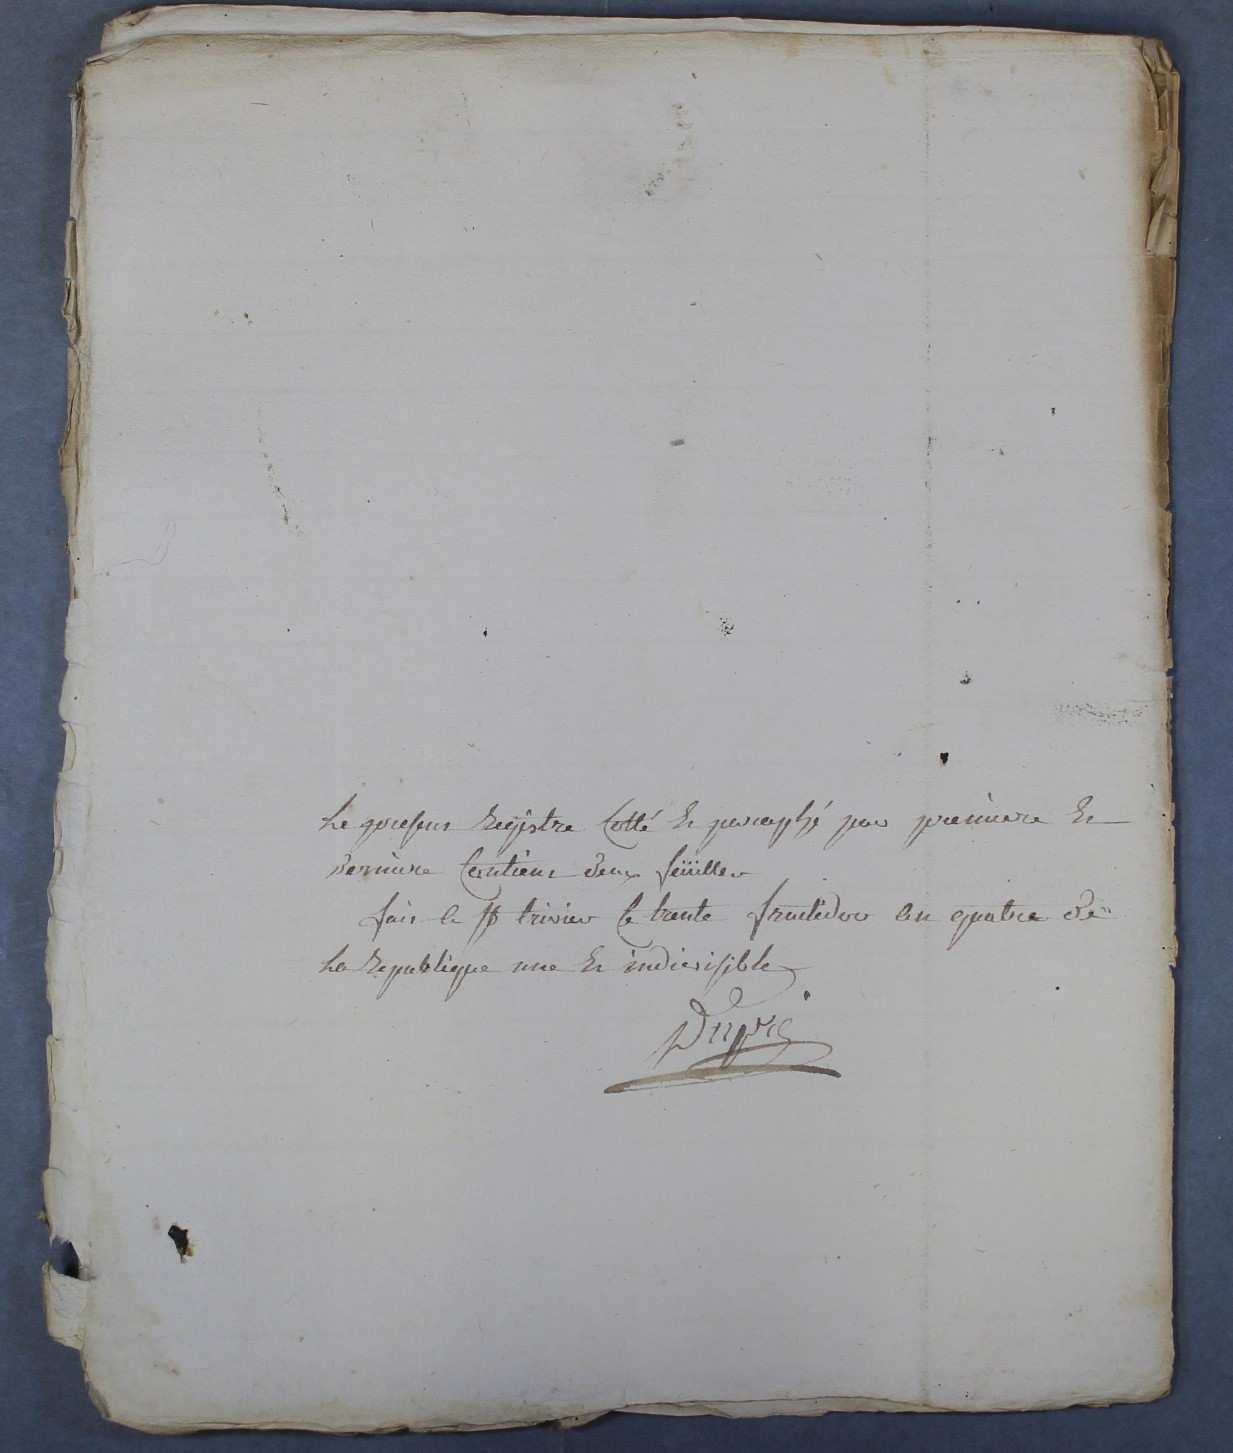 Le present Registre Cotté Et paraphé par première Et
derniere Contient deux feüilles
fait a St trivier le trente fructidor an quatre de
La Republique une Et indivisible
Dupré